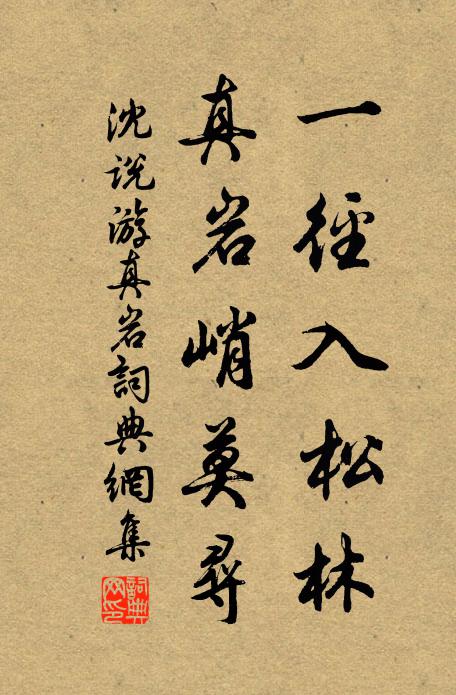 一徑入松林
真岩峭莫尋
沈說游真岩詞典網集
詞典網印